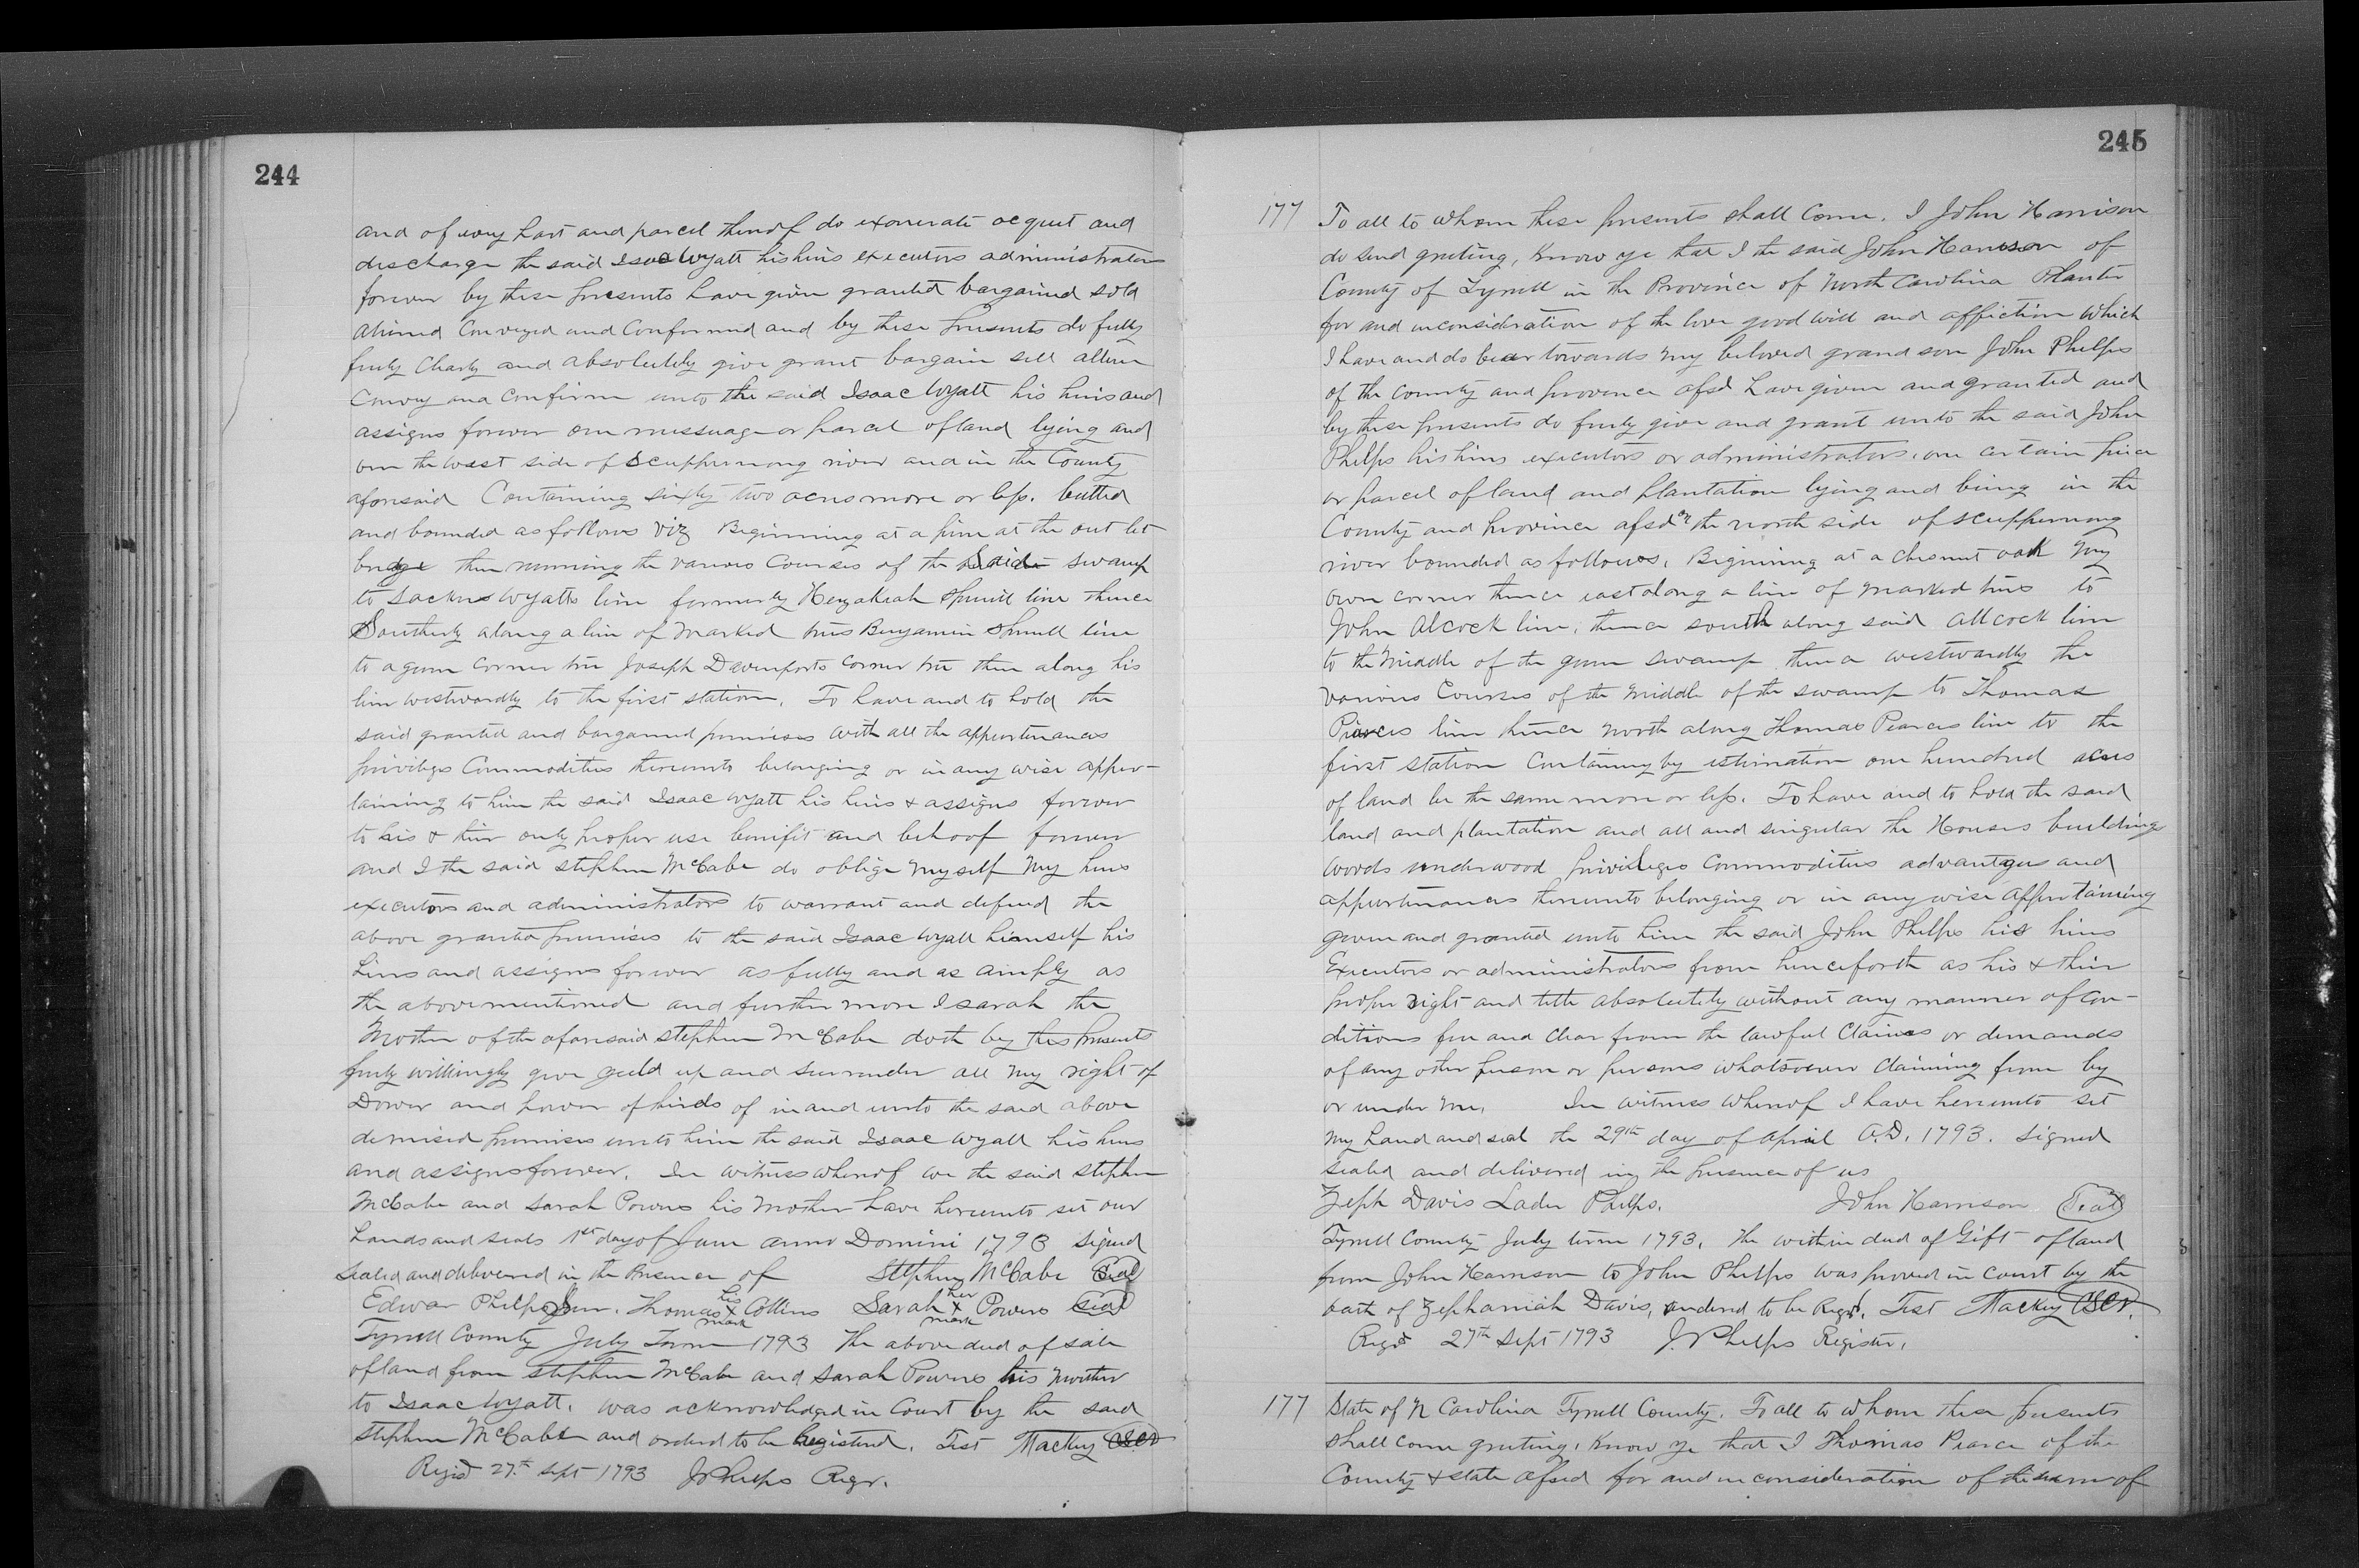 244
and of every part and parcel thereof do exonerate acquit and
discharge the said Isaac Wyatt his heirs executors administrators
forever by these presents have given granted bargained sold
aliened Conveyed and Confirmed and by these presents do fully
freely Clearly and absolutely give grant bargain sell alien
Convey and confirm unto the said Isaac Wyatt his heirs and
assigns forever one messuage or parcel of land lying and
on the west side of Scuppernong river and in the County
aforesaid Containing sixty two acres more or less. butted
and bounded as follows viz Beginning at a pine at the out let
bridge then running the various Courses of the said swamp
to Sackers Wyatts line formerly Hezakiah Spruill line thence
Southerly along a line of marked trees Benjamin Spruill line
to a gum corner tree Joseph Davenports corner tree then along his
line westwardly to the first station. To have and to hold the
said granted and bargained premises with all the appurtenances
privileges Commodities thereunto belonging or in any wise apper-
taining to him the said Isaac Wyatt his heirs & assigns forever
to his & their only proper use benifit and behoof forever
and I the said Stephen McCabe do oblige myself my heirs
executors and administrators to warrant and defend the
above granted premises to the said Isaac Wyatt himself his
heirs and assigns forever as fully and as amply as
the above mentioned and further more I Sarah the
Mother of the aforesaid Stephen McCabe doth by these presents
freely willingly give yeeld up and surrender all my right of
Dower and power of thirds of in and unto the said above
demised premises unto him the said Isaac Wyatt his heirs
and assigns forever. In witness whereof we the said Stephen
McCabe and Sarah Powers his mother have hereunto set our
hands and seals 1st day of June anno Domini 1793 signed
sealed and delivered in the Presence of Stephen McCabe Seal
Edwar Phelps Jun. Thomas his x mark Collins Sarah her x mark Powers Seal
Tyrrell County July Term 1793 The above deed of sale
of land from Stephen McCabe and Sarah Powers his mother
to Isaac Wyatt. was acknowledged in Court by the said
Stephen McCabe and orderd to be Registered. Test Mackey CSCr
Regisd 27.th Sept 1793 J Phelps Regr.
245
177 To all to whom these presents shall Come. I John Harrison
do send greeting, Know ye that I the said John Harrison of
County of Tyrrell in the Province of North Carolina Planter
for and inconsideration of the love good will and affiction which
I have and do bear towards my beloved grand son John Phelps
of the County and province afsd have given and granted and
by these presents do freely give and grant unto the said John
Phelps his heirs executors or administrators, one certain piece
or parcel of land and plantation lying and being in the
County and Province afsd on the north side of Scuppernong
river bounded as follows, Beginning at a chesnut oak my
own corner thence east along a line of marked trees to
John Alcock line, thence south along said Allcock line
to the middle of the gum swamp thence westwardly the
various Courses of the middle of the swamp to Thomas
Pearces line thence north along Thomas Pearces line to the
first station Containing by estimation one hundred acres
of land be the same more or less. To have and to hold the said
land and plantation and all and singular the Houses buildings
woods underwood privileges Commodities advantages and
appurtenances thereunto belonging or in any wise appertaining
given and granted unto him the said John Phelps his heirs
Executors or administrators from henceforth as his & their
proper right and title absolutely without any manner of Con-
ditions free and clear from the lawful Claims or demands
of any other person or persons whatsoever claiming from by
or under me. In witness whereof I have hereunto set
my hand and seal the 29th day of April A.D. 1793. Signed
sealed and delivered in the presence of us
Zeph Davis Lader Phelps. John Harrison Seal
Tyrrell County July term 1793. The within deed of Gift of land
from John Harrison to John Phelps was proved in Court by the
oath of Zephaniah Davis, ordered to be Regd. Test Mackey CSCr.
Regd 27th Sept 1793 J. Phelps Register.
177 State of N Carolina Tyrrell County. To all to whom these presents
shall come greeting. Know ye that I Thomas Pearce of the
County & state afsed for and in consideration of the sum of